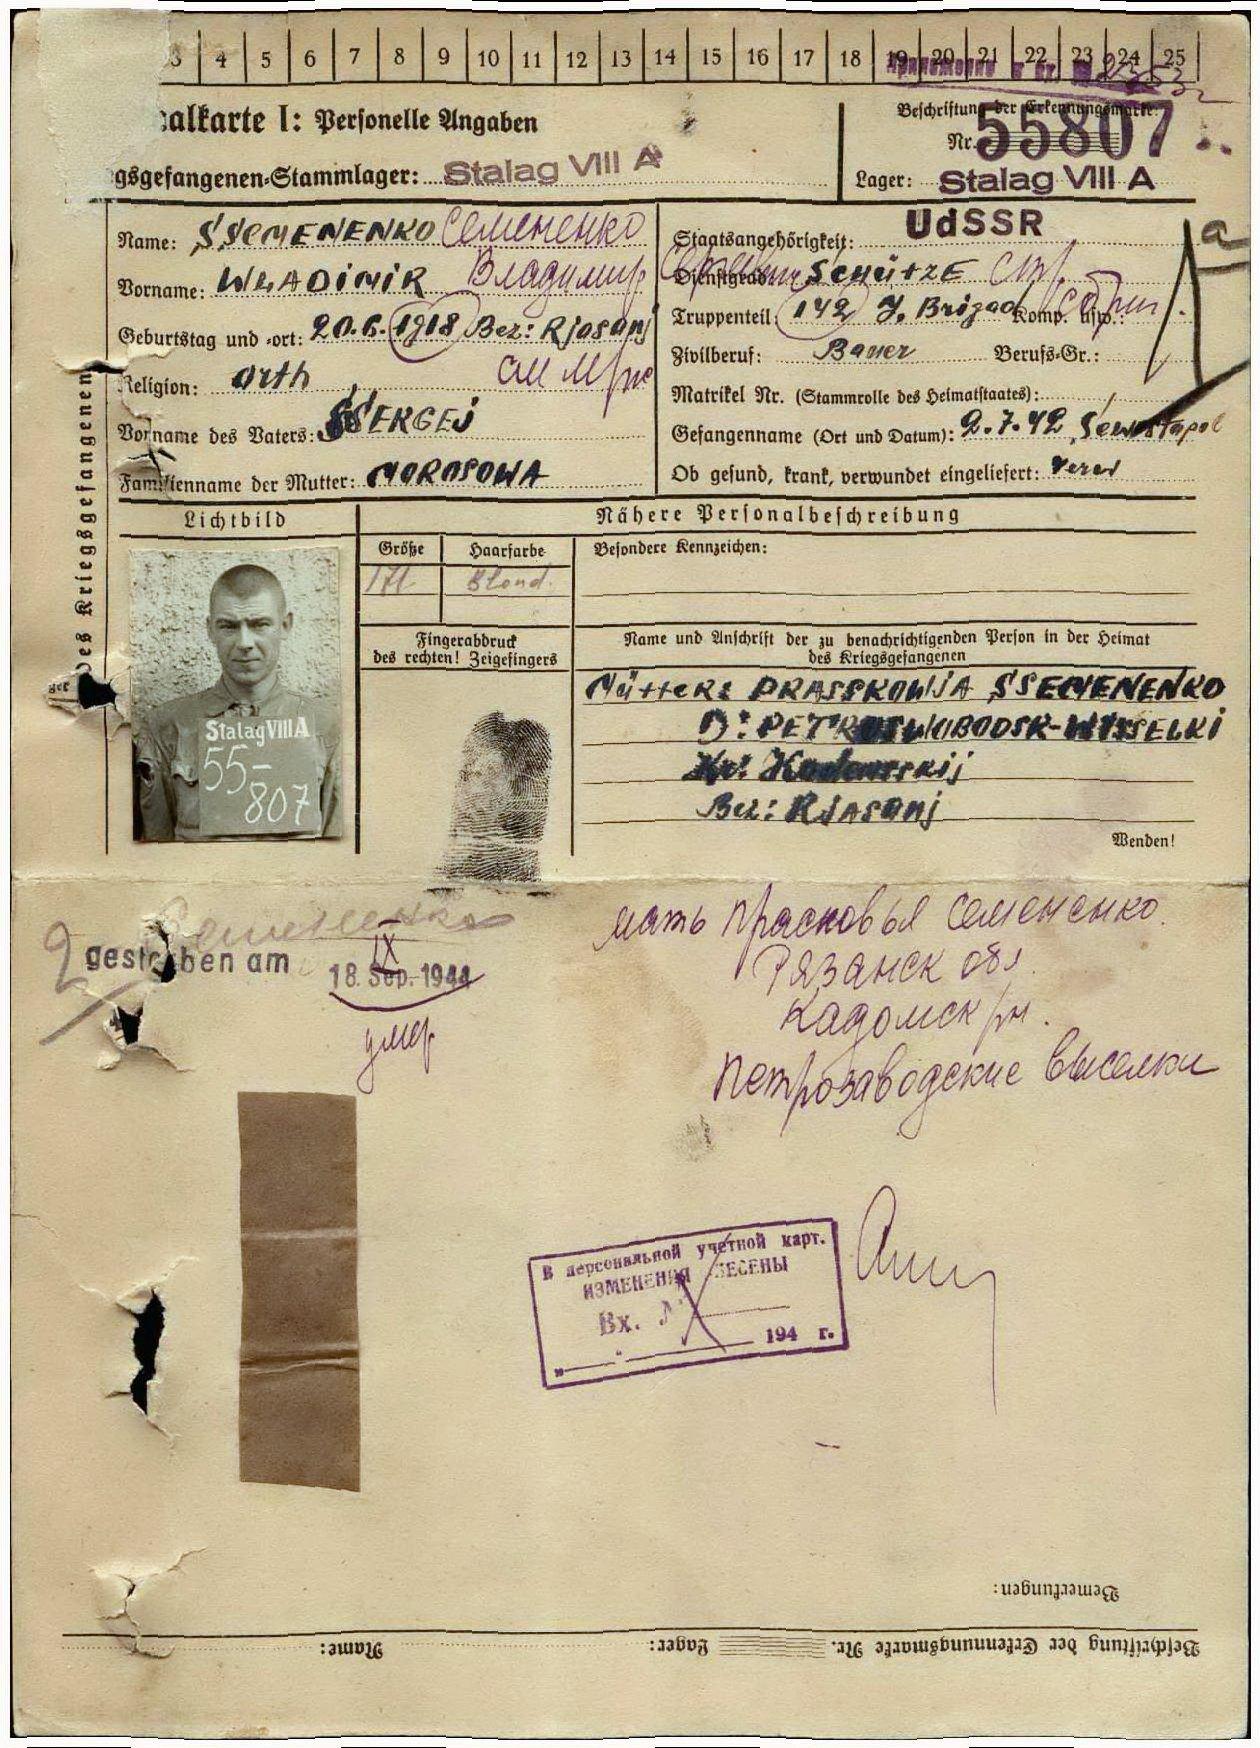 3 4 5 6 7 8 9 10 11 12 13 14 15 16 17 18 19 20 21 22 23 24 25
alkarte I: Personelle Angaben
gsgefangenen=Stammlager: Stalag VIII A
Beschriftung der Erkennungsmarke
Nr. 55807
Lager: Stalag VIII A
des Kriegsgefangenen
Name: SSEMENENKO Семененко
Vorname: WLADIMIR Владимир
Geburtstag und =ort: 20.6.1918 Bez: Rjasanj
Religion: orth
Vorname des Vaters: SSERGEJ
Familienname der Mutter: MOROSOWA
Staatsangehörigkeit: UdSSR
Dienstgrad: Schütze
Truppenteil: 142 J. Brigad Komp. usw.:
Zivilberuf: Bauer Berufs=Gr.:
Matrikel Nr. (Stammrolle des Heimatstaates):
Gefangenname (Ort und Datum): 2.7.42 Sewastapol
Ob gesund, krank, verwundet eingeliefert:
Lichtbild
Nähere Personalbeschreibung
Größe Haarfarbe Besondere Kennzeichen:
171 Blond.
Fingerabdruck
des rechten! Zeigefingers
Name und Anschrift der zu benachrichtigenden Person in der Heimat
des Kriegsgefangenen
Stalag VIII A
55-
807
Mutter: PRASSKOWJA SSEMENENKO
D: PETROSWOBODSK-WISSELKI
Bez: RJASANJ
Wenden!
Семененко
2
gestorben am 18. Sep. 1944
IX
умер
мать Прасковья Семененко.
Рязанск обл
Кадомск рн.
Петрозаводские Выселки
В персональной учетной карт.
ИЗМЕНЕНИЯ ВНЕСЕНЫ
Вх. №
194 г.
Bemerkungen:
Beschriftung der Erkennungsmarke Nr. Lager: Name: